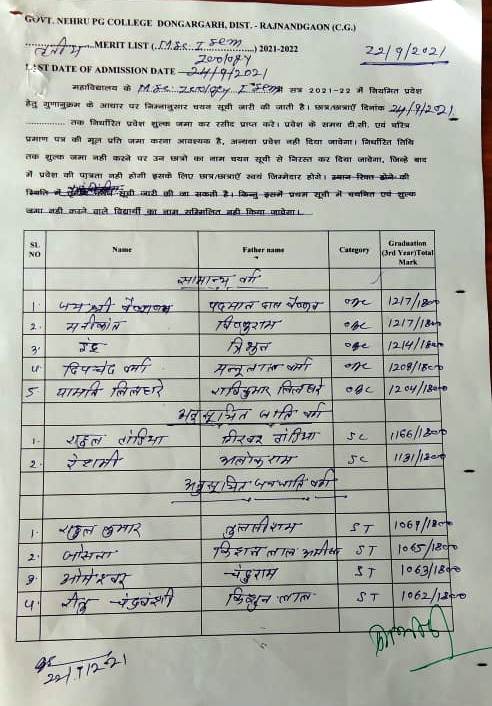 GOVT. NEHRU PG COLLEGE DONGARGARH, DIST. - RAJNANDGAON (C.G.)
तृतीय MERIT LIST (M.Sc. I Sem Zoology) 2021-2022 22/9/2021
LAST DATE OF ADMISSION DATE 24/9/2021
महाविद्यालय के M.Sc. Zoology I Sem सत्र 2021-22 में नियमित प्रवेश
हेतु गुणानुक्रम के आधार पर निम्नानुसार चयन सूची जारी की जाती है। छात्र/छात्राएँ दिनांक 24/9/2021
तक निर्धारित प्रवेश शुल्क जमा कर रसीद प्राप्त करे। प्रवेश के समय टी.सी. एवं चरित्र
प्रमाण पत्र की मूल प्रति जमा करना आवश्यक है, अन्यथा प्रवेश नही दिया जावेगा। निर्धारित तिथि
तक शुल्क जमा नही करने पर उन छात्रो का नाम चयन सूची से निरस्त कर दिया जावेगा, जिन्हे बाद
में प्रवेश की पात्रता नही होगी इसके लिए छात्र/छात्राएँ स्वयं जिम्मेदार होगे। स्थान रिक्त होने की
स्थिति में सूची जारी की जा सकती है। किन्तु इसमें प्रथम सूची में चयनित एवं शुल्क
जमा नही करने वाले विद्यार्थी का नाम सम्मिलित नही किया जावेगा।
SL NO Name Father name Category Graduation (3rd Year)Total Mark
सामान्य वर्ग
1. जयश्री वैष्णव पदमान दास वैष्णव OBC 1217/1800
2. मनीकांत विष्णुराम OBC 1217/1800
3. इंद्र OBC 1214/1800
4. दिपचंद वर्मा मन्नूलाल वर्मा OBC 1208/1800
5 यामनि लिलहारे रविकुमार लिलहारे OBC 1204/1800
अनुसूचित जाति वर्ग
1. राहुल तांडिया तांडिया SC 1166/1800
2. रेशमी अलोकराम SC 1131/1800
अनुसूचित जनजाति वर्ग
1. राहुल कुमार तुलसीराम ST 1067/1800
2. जोसना किशन लाल ST 1065/1800
3. ओमेश्वर चंदुराम ST 1063/1800
4. रितु चंद्रवंशी लाल ST 1062/1800
22/9/2021